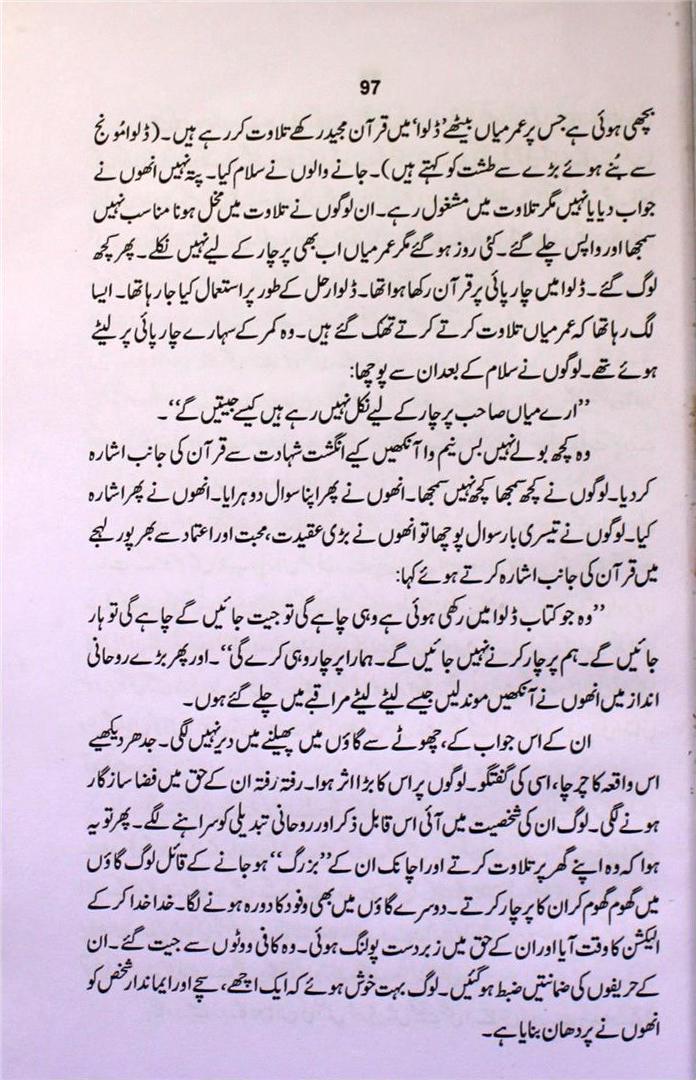 97
بچھی ہوئی ہے جس پر عمر میاں بیٹھے ’ڈلوا‘ میں قرآن مجید رکھے تلاوت کر رہے ہیں۔ (ڈلوا مُونج
سے بُنے ہوئے بڑے سے طشت کو کہتے ہیں)۔ جانے والوں نے سلام کیا۔ پتہ نہیں انھوں نے
جواب دیا یا نہیں مگر تلاوت میں مشغول رہے۔ ان لوگوں نے تلاوت میں مخل ہونا مناسب نہیں
سمجھا اور واپس چلے گئے۔ کئی روز ہو گئے مگر عمر میاں اب بھی پرچار کے لیے نہیں نکلے۔ پھر کچھ
لوگ گئے۔ ڈلوا میں چارپائی پر قرآن رکھا ہوا تھا۔ ڈلوا رحل کے طور پر استعمال کیا جا رہا تھا۔ ایسا
لگ رہا تھا کہ عمر میاں تلاوت کرتے کرتے تھک گئے ہیں۔ وہ کمر کے سہارے چارپائی پر لیٹے
ہوئے تھے۔ لوگوں نے سلام کے بعد ان سے پوچھا:
’’ارے میاں صاحب پرچار کے لیے نکل نہیں رہے ہیں کیسے جیتیں گے‘‘۔
وہ کچھ بولے نہیں بس نیم وا آنکھیں کیے انگشت شہادت سے قرآن کی جانب اشارہ
کر دیا۔ لوگوں نے کچھ سمجھا کچھ نہیں سمجھا۔ انھوں نے پھر اپنا سوال دوہرایا۔ انھوں نے پھر اشارہ
کیا۔ لوگوں نے تیسری بار سوال پوچھا تو انھوں نے بڑی عقیدت، محبت اور اعتماد سے بھرپور لہجے
میں قرآن کی جانب اشارہ کرتے ہوئے کہا:
’’وہ جو کتاب ڈلوا میں رکھی ہوئی ہے وہی چاہے گی تو جیت جائیں گے چاہے گی تو ہار
جائیں گے۔ ہم پرچار کرنے نہیں جائیں گے۔ ہمارا پرچار وہی کرے گی‘‘۔ اور پھر بڑے روحانی
انداز میں انھوں نے آنکھیں موند لیں جیسے لیٹے لیٹے مراقبے میں چلے گئے ہوں۔
ان کے اس جواب کے، چھوٹے سے گاؤں میں پھیلنے میں دیر نہیں لگی۔ جدھر دیکھیے
اس واقعہ کا چرچا، اسی کی گفتگو۔ لوگوں پر اس کا بڑا اثر ہوا۔ رفتہ رفتہ ان کے حق میں فضا سازگار
ہونے لگی۔ لوگ ان کی شخصیت میں آئی اس قابل ذکر اور روحانی تبدیلی کو سراہنے لگے۔ پھر تو یہ
ہوا کہ وہ اپنے گھر پر تلاوت کرتے اور اچانک ان کے ’’بزرگ‘‘ ہو جانے کے قائل لوگ گاؤں
میں گھوم گھوم کر ان کا پرچار کرتے۔ دوسرے گاؤں میں بھی وفود کا دورہ ہونے لگا۔ خدا خدا کر کے
الیکشن کا وقت آیا اور ان کے حق میں زبردست پولنگ ہوئی۔ وہ کافی ووٹوں سے جیت گئے۔ ان
کے حریفوں کی ضمانتیں ضبط ہو گئیں۔ لوگ بہت خوش ہوئے کہ ایک اچھے، سچے اور ایماندار شخص کو
انھوں نے پردھان بنایا ہے۔